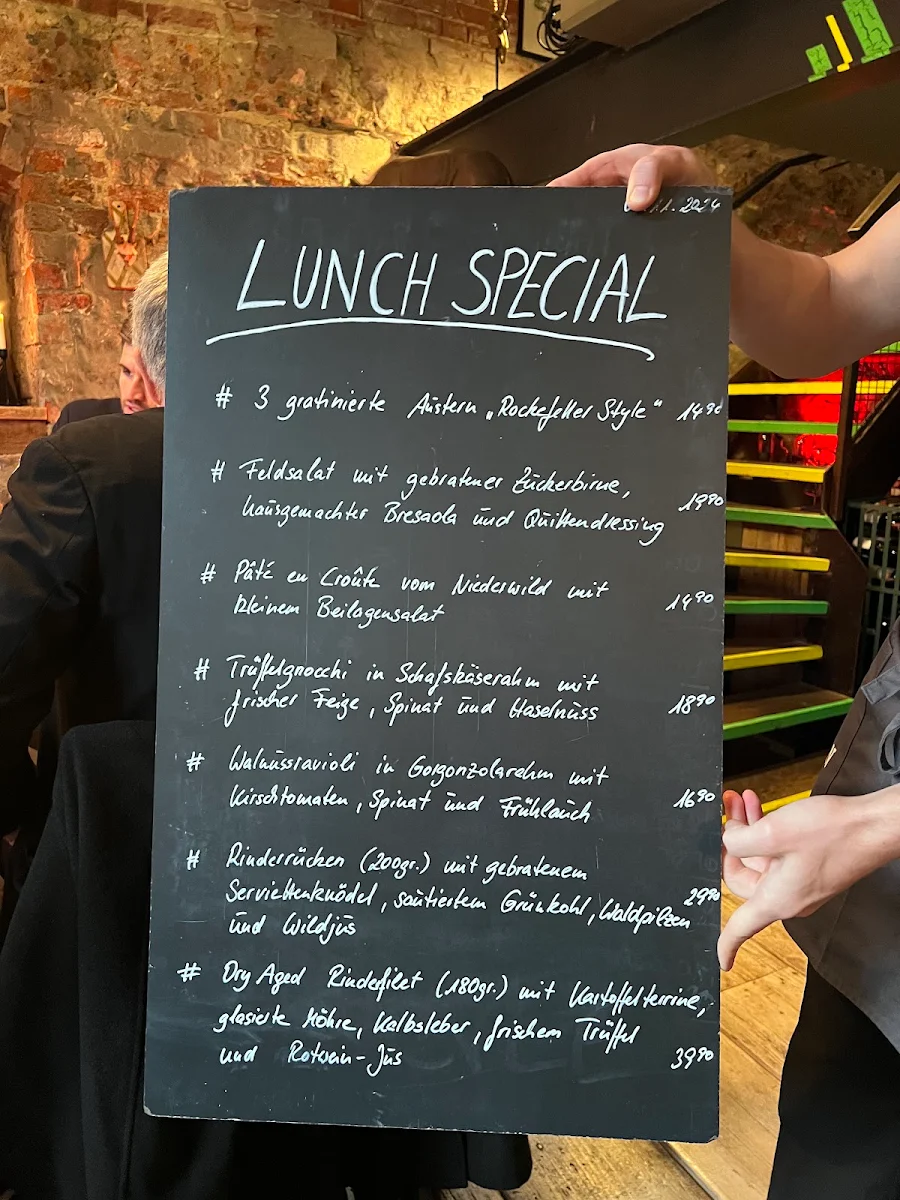 2024
LUNCH SPECIAL
# 3 gratinierte Austern „Rockefeller Style“ 14 90
# Feldsalat mit gebratener Zuckerbirne,
hausgemachter Bresaola und Quittendressing 19 90
# Pâté en Croûte vom Niederwild mit
kleinem Beilagensalat 14 90
# Trüffelgnocchi in Schafskäserahm mit
frischer Feige, Spinat und Haselnuss 18 90
# Walnussravioli in Gorgonzolarahm mit
Kirschtomaten, Spinat und Frühlauch 16 90
# Rinderrücken (200gr.) mit gebratenem
Serviettenknödel, sautiertem Grünkohl, Waldpilzen 29 90
und Wildjus
# Dry Aged Rinderfilet (180gr.) mit Kartoffelterrine,
glasierte Möhre, Kalbsleber, frischem Trüffel
und Rotwein-Jus 39 90